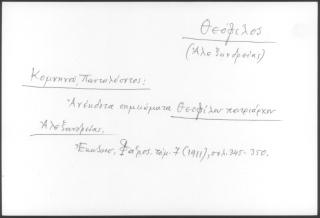 Θεόφιλος
(Ἀλεξανδρείας)
Κομνηνοῦ, Παντολέοντος:
Ἀνέκδοτα σημειώματα Θεοφίλου πατριάρχου
Ἀλεξανδρείας.
Ἐκκλησ. Φάρος. τόμ. 7 (1911), σελ. 345-350.